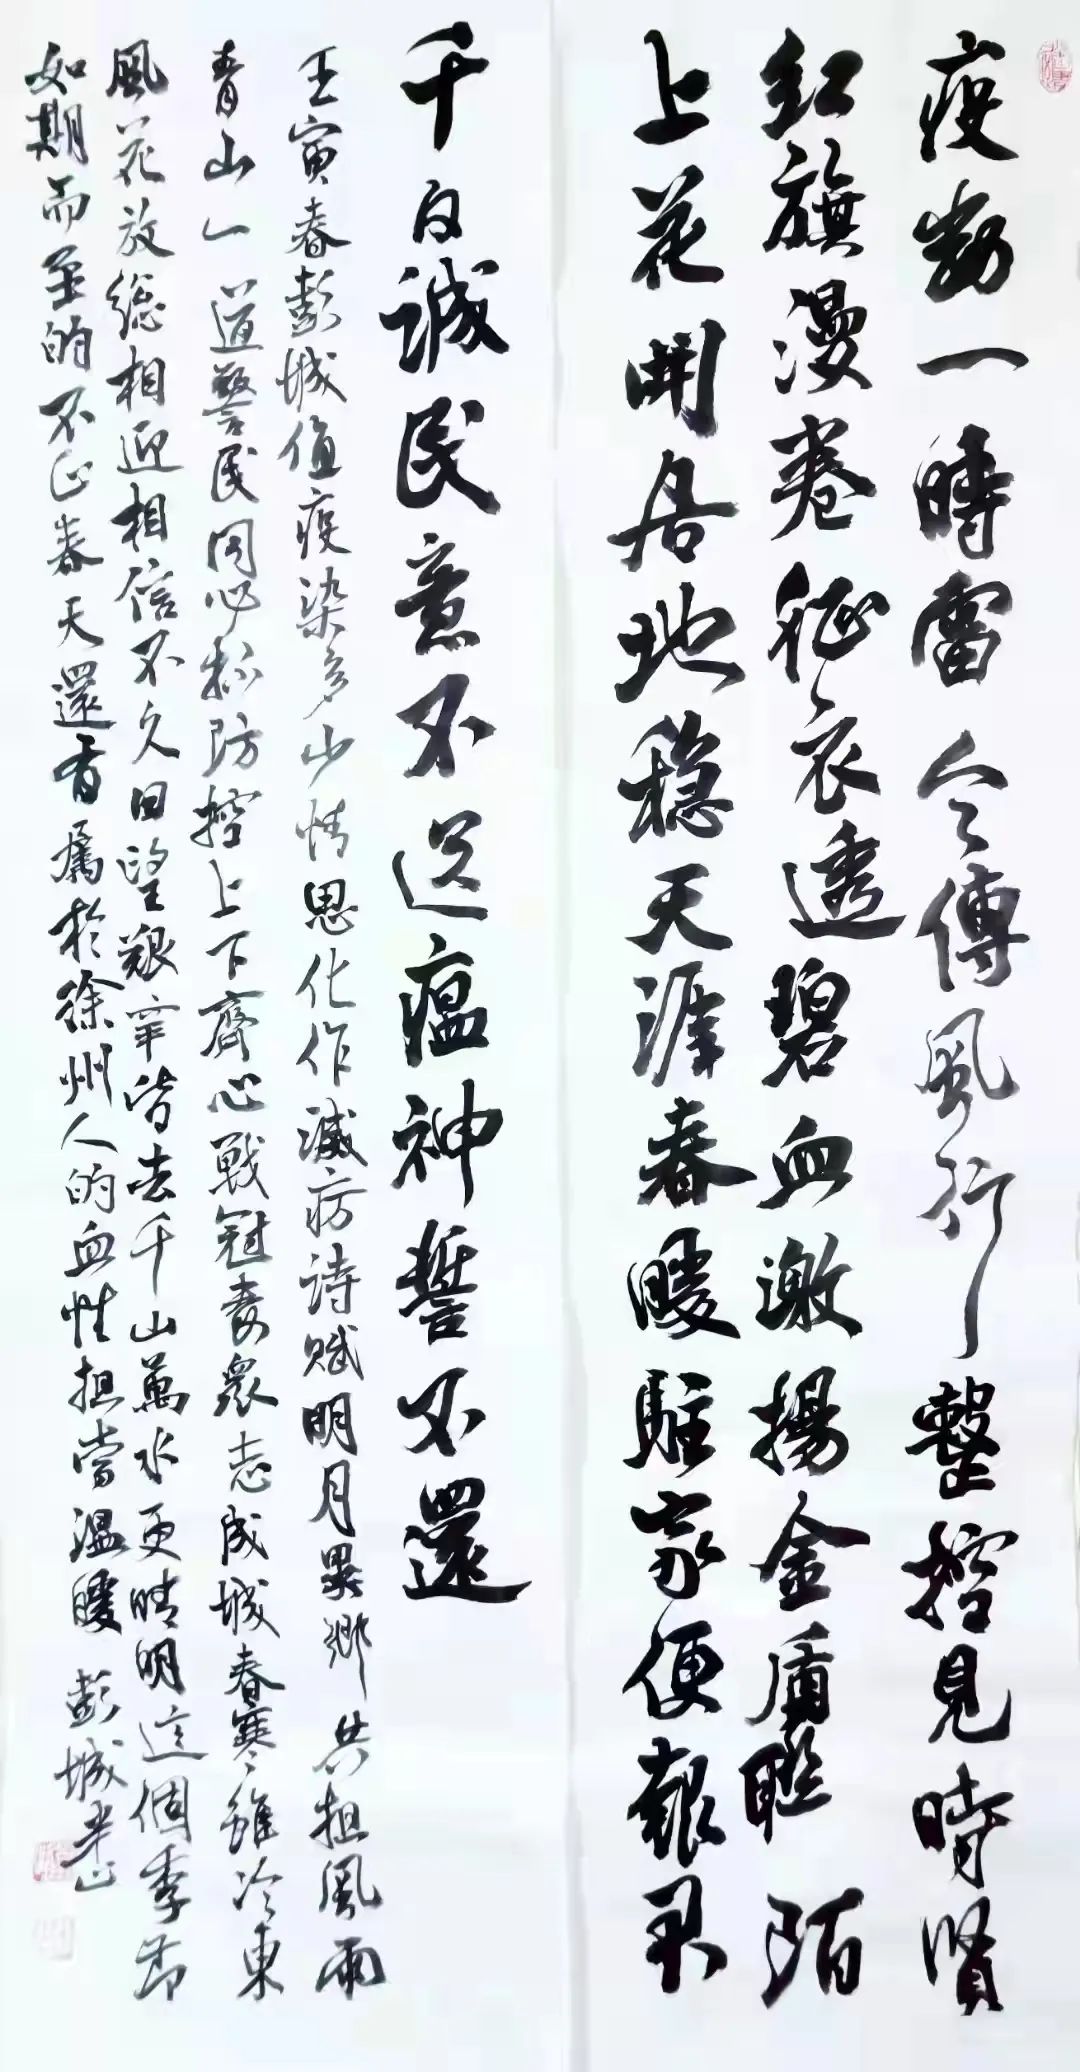 疫勢一時雷令傳風行整控見時賢
紅旗漫卷征衣透碧血激揚金盾堅陌
上花開居地穩天涯春暖駐家便報君
千百誠民意不送瘟神誓不還
壬寅春彭城值疫染多少情思化作滅疫詩賦明月異鄉共担風雨
青山一道警民同心抓防控上下齊心戰冠毒眾志成城春寒雖冷東
風花放總相迎相信不久回望艱辛皆去千山萬水更晴明這個季節
如期而至的不止春天還有屬於徐州人的血性担當溫暖 彭城半山